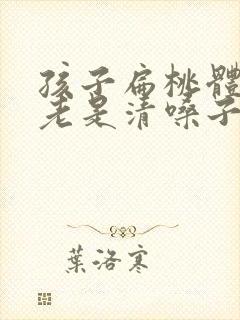 孩子扁桃體
老是清嗓子
葉洛寒